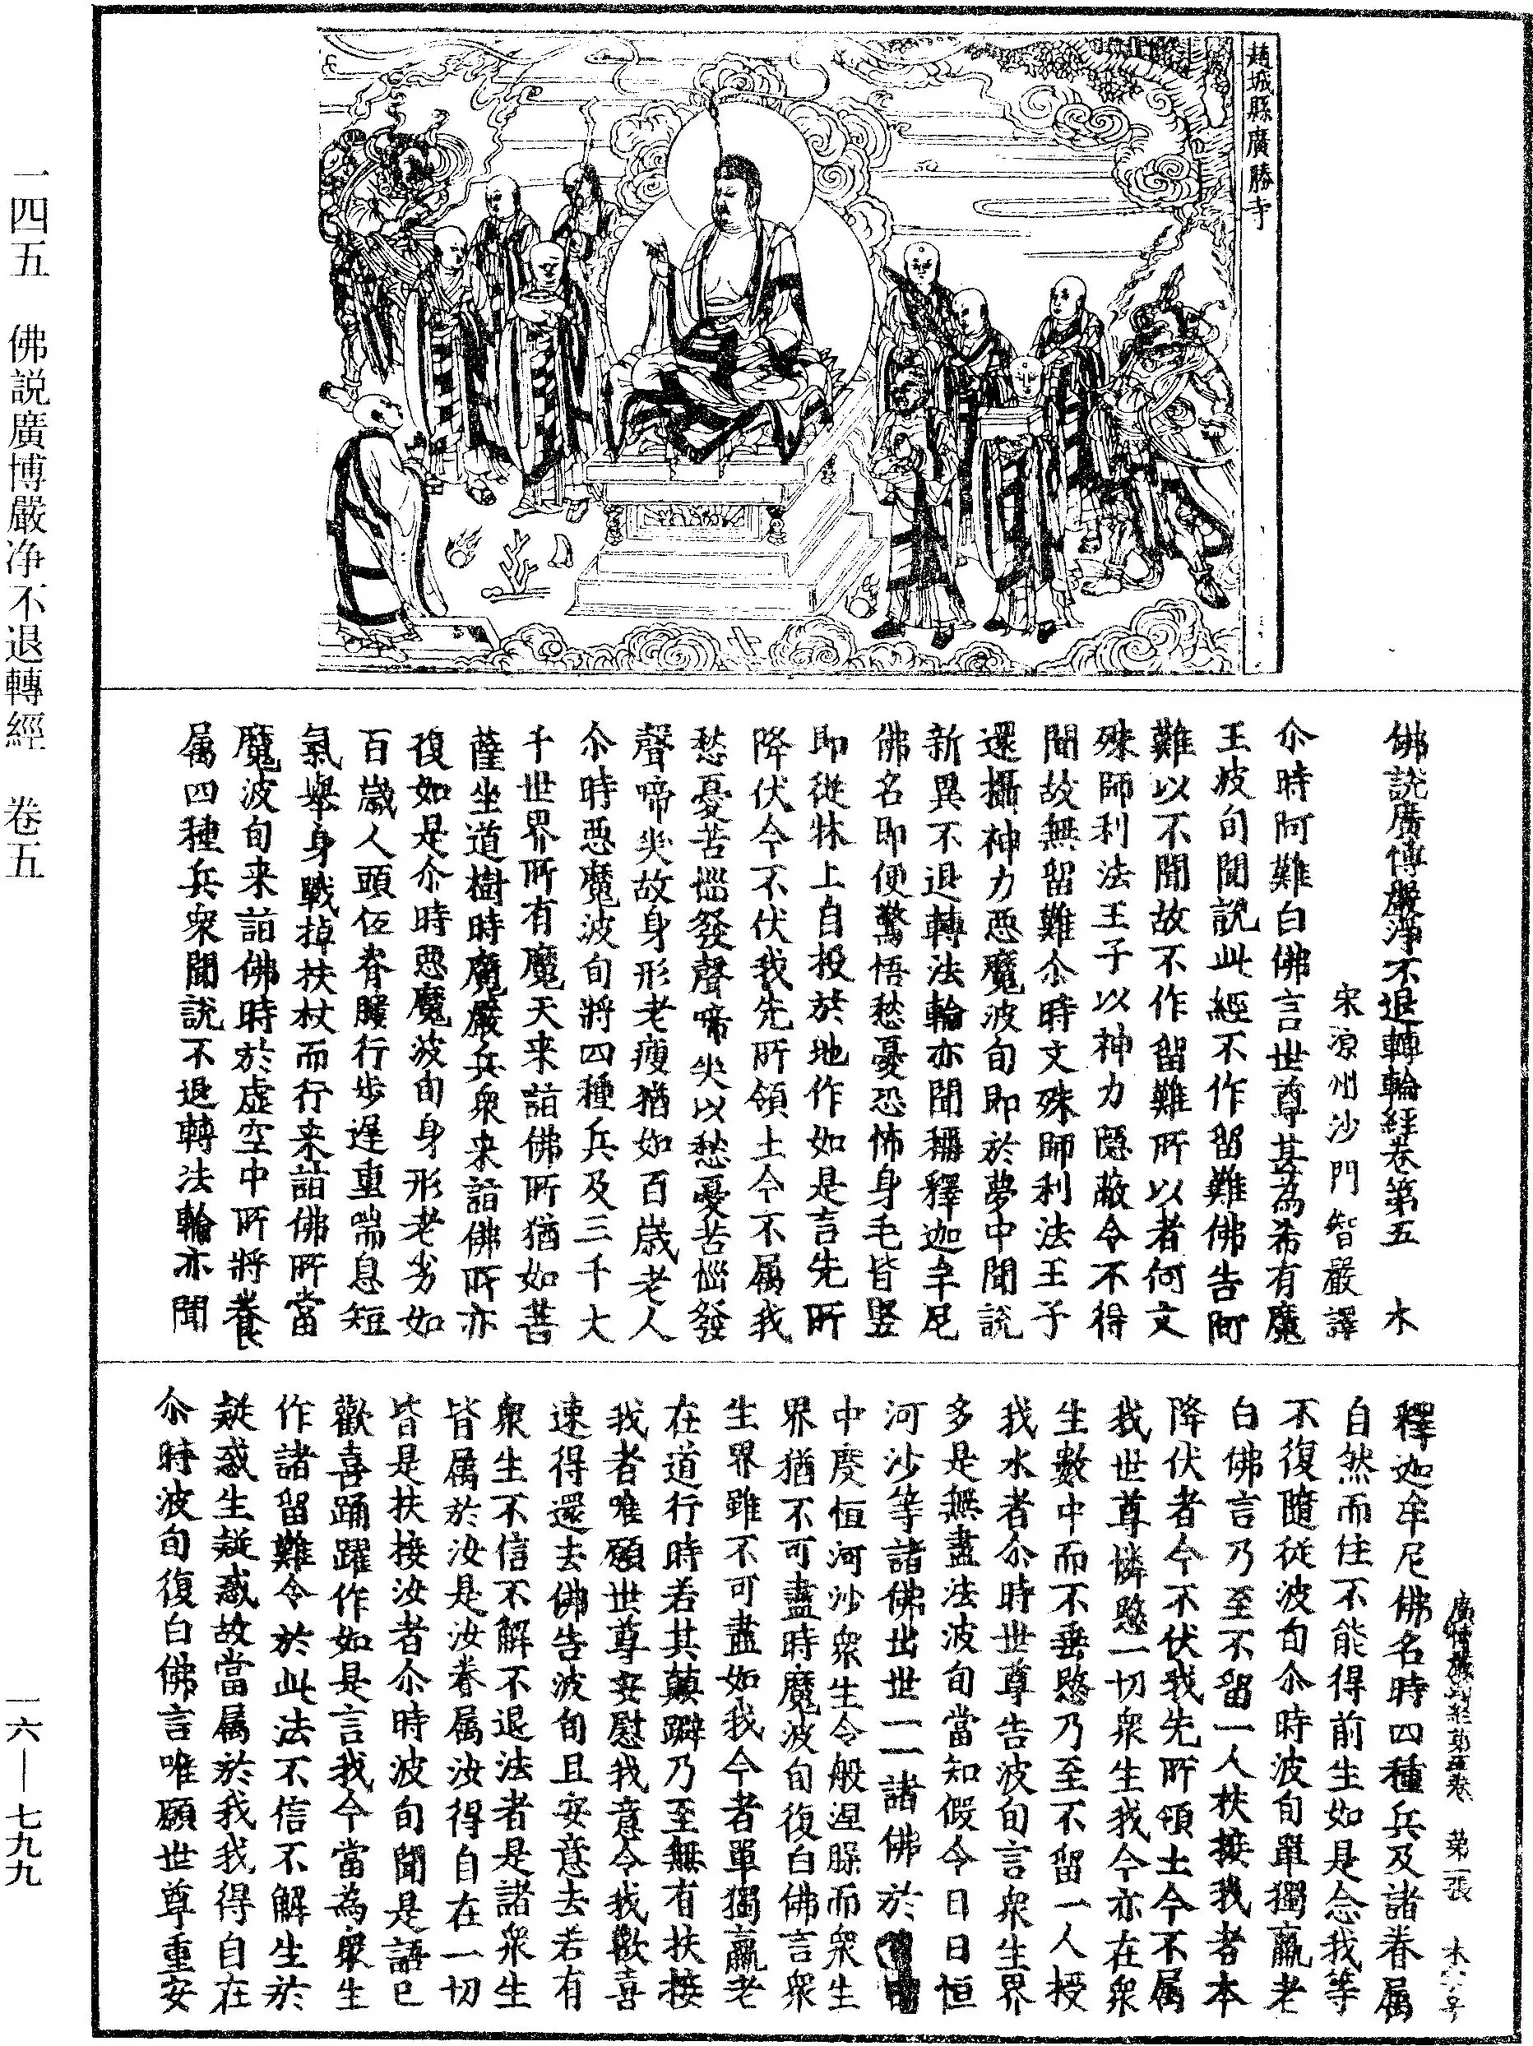 趙城縣廣勝寺
佛說廣博嚴淨不退轉輪經卷第五　木
宋涼州沙門智嚴譯
尒時阿難白佛言世尊甚為希有魔
王波旬聞說此經不作留難佛告阿
難以不聞故不作留難所以者何文
殊師利法王子以神力隱蔽令不得
聞故無留難尒時文殊師利法王子
還攝神力惡魔波旬即於夢中聞說
新異不退轉法輪亦聞稱釋迦牟尼
佛名即便驚悟愁憂恐怖身毛皆竪
即從牀上自投於地作如是言先所
降伏今不伏我先所領土今不属我
愁憂苦惱發聲啼哭以愁憂苦惱發
聲啼哭故身形老瘦猶如百歲老人
尒時惡魔波旬將四種兵及三千大
千世界所有魔天来詣佛所猶如菩
薩坐道樹時魔嚴兵衆来詣佛所亦
復如是尒時惡魔波旬身形老劣如
百歲人頭伍脊膢行步遅重喘息短
氣舉身戰掉扶杖而行来詣佛所當
魔波旬来詣佛時於虚空中所將眷
属四種兵衆聞說不退轉法輪亦聞
釋迦牟尼佛名時四種兵及諸眷属
自然而住不能得前生如是念我等
不復隨從波旬尒時波旬單獨羸老
白佛言乃至不留一人扶接我者本
降伏者今不伏我先所領土今不属
我世尊憐愍一切衆生我今亦在衆
生數中而不垂愍乃至不留一人授
我水者尒時世尊告波旬言衆生界
多是無盡法波旬當知假令日日恒
河沙等諸佛出世一一諸佛於
中度恒河沙衆生令般涅槃而衆生
界猶不可盡時魔波旬復白佛言衆
生界雖不可盡如我今者單獨羸老
在道行時若其顛躃乃至無有扶接
我者唯願世尊安慰我意令我歡喜
速得還去佛告波旬且安意去若有
衆生不信不解不退法者是諸衆生
皆属於汝是汝眷属汝得自在一切
皆是扶接汝者尒時波旬聞是語已
歡喜踊躍作如是言我今當為衆生
作諸留難令於此法不信不解生於
疑惑生疑惑故當属於我我得自在
尒時波旬復白佛言唯願世尊重安
廣博嚴淨經第五卷　第一張　木字号
一四五　佛説廣博嚴净不退轉經　卷五
一六—七九九